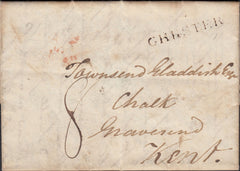 CHESTER
Townsend Gladdish Esqr
8
Chalk
Gravesend
Kent.